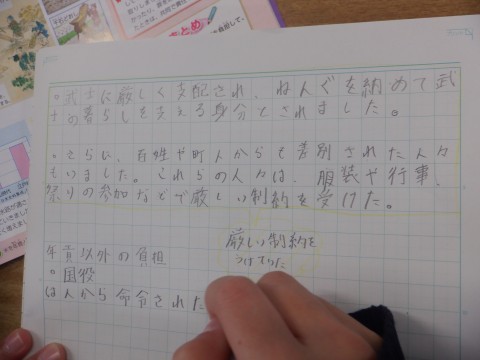 まとめ
。武士に厳しく支配され、ねんぐを納めて武
士の暮らしを支える身分とされました。
。さらに、百姓や町人からも差別された人々
もいました。これらの人々は、服装や行事、
祭りの参加などで厳しい制約を受けた。
厳しい制約を
つけてった
年貢以外の負担
。国役
は人から命令された